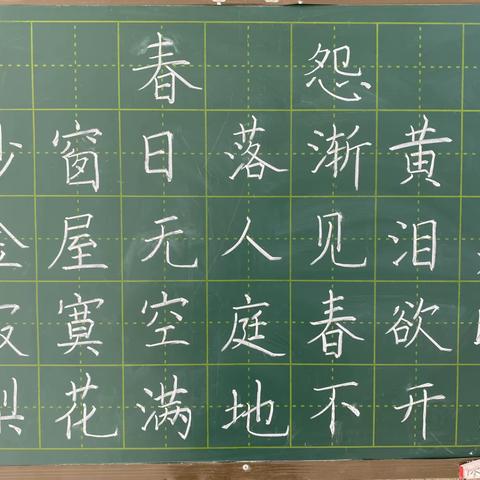 春怨
窗日落渐黄
金屋无人见泪
寂寞空庭春欲
梨花满地不开